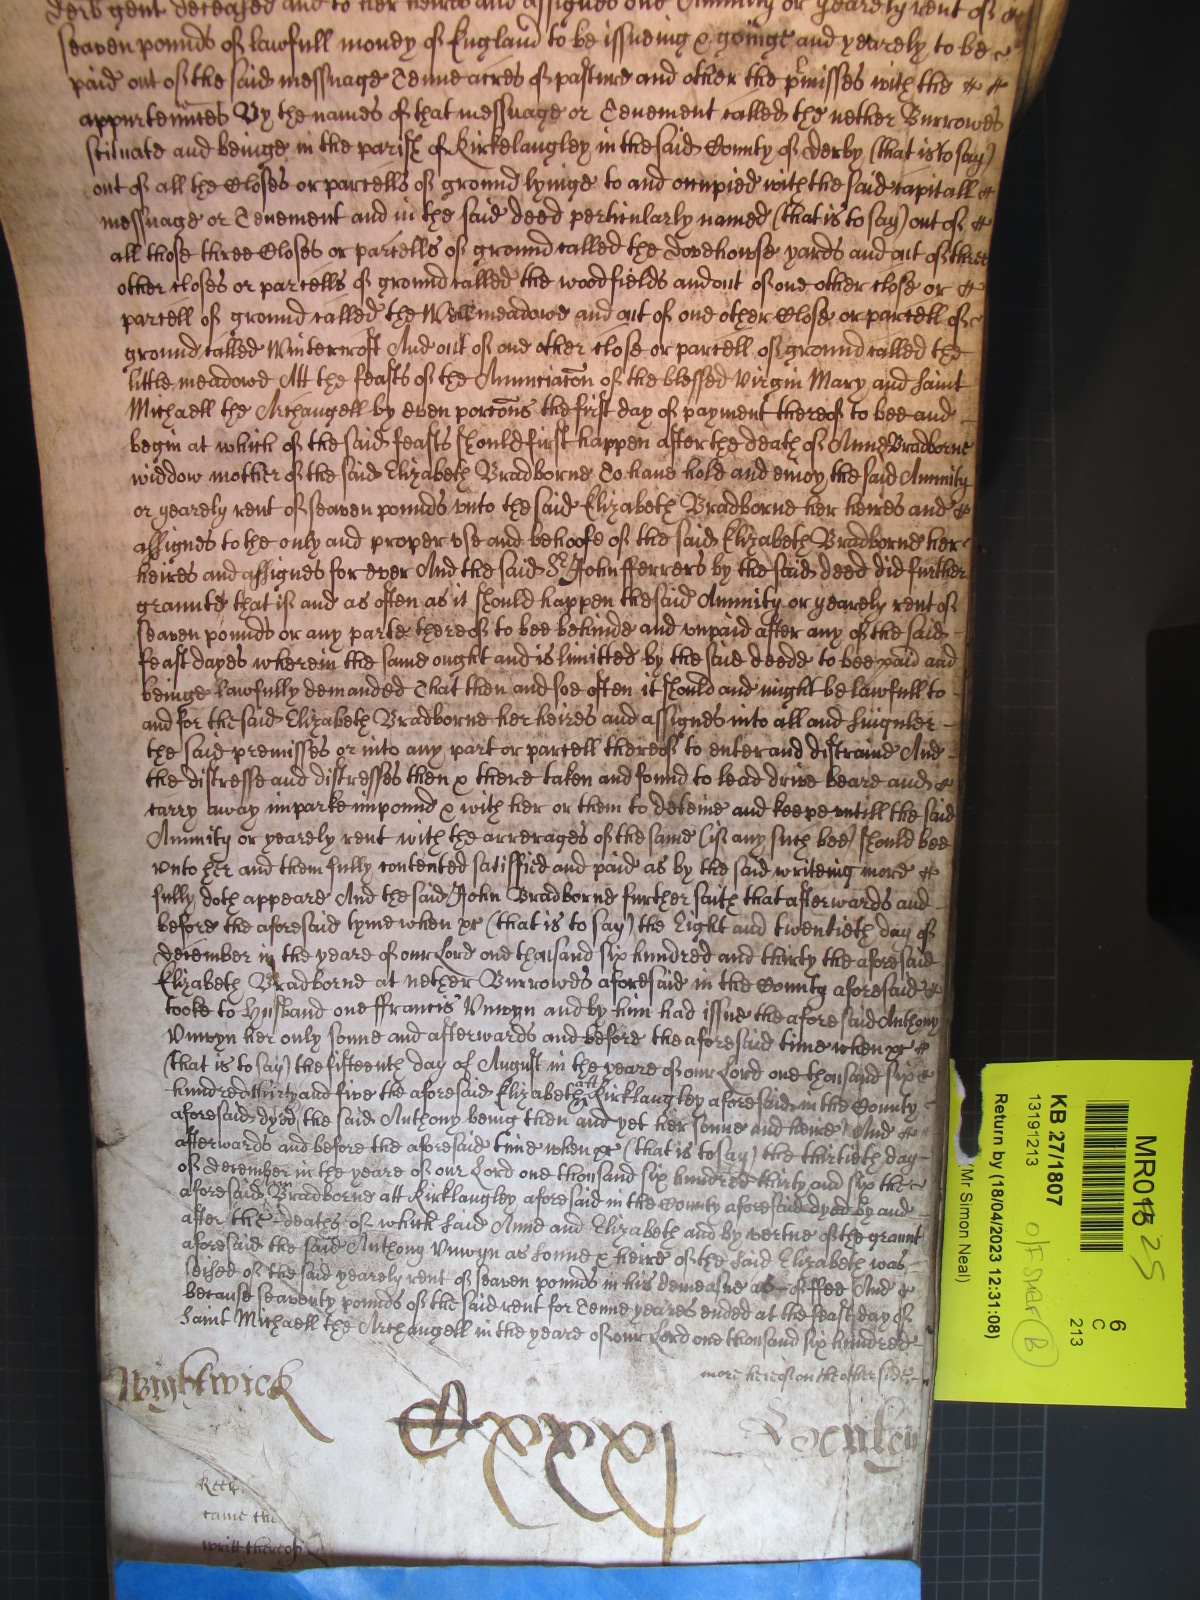 gent deceased and to her heires and assignes one Annuity or yearely rent of
seaven pounds of lawfull money of England to be issueing & goinge and yearely to be
paid out of the said messuage Tenne acres of pasture and other the p'misses with the
appurtenn'ces By the names of that messuage or Tenement called the nether Burrowes
scituate and beinge in the parish of Kirkelangley in the said County of Derby (that is to say)
out of all the Closes or parcells of ground lyinge to and occupied with the said capitall
messuage or Tenement and in the said deed perticularly named (that is to say) out of
all those three Closes or parcells of ground called the Dovehouse yards and out of three
other closes or parcells of ground called the woodfields and out of one other close or
parcell of ground called the meadowe and out of one other Close or parcell of
ground called Wintercroft And out of one other close or parcell of ground called the
little meadowe Att the feasts of the Annunciac'on of the blessed virgin Mary and Saint
Michaell the Archangell by even porc'ons the first day of payment thereof to bee and
begin at which of the said feasts should first happen after the death of Anne Bradborne
widdow mother of the said Elizabeth Bradborne To have hold and enioy the said Annuity
or yearely rent of seaven pounds unto the said Elizabeth Bradborne her heires and
assignes to the only and proper use and behoofe of the said Elizabeth Bradborne her
heires and assignes for ever And the said Sr John fferrers by the said deed did further
graunte that if and as often as it should happen the said Annuity or yearely rent of
seaven pounds or any parte thereof to bee behinde and unpaid after any of the said
feast dayes wherein the same ought and is limitted by the said deede to bee paid and
beinge lawfully demanded That then and soe often it should and might be lawfull to
and for the said Elizabeth Bradborne her heires and assignes into all and singuler
the said premisses or into any part or parcell thereof to enter and distraine And
the distresse and distresses then & there taken and found to lead drive beare and
carry away imparke impound & with her or them to deteine and keepe untill the said
Annuity or yearely rent with the arrerages of the same (if any such bee) should bee
unto her and them fully contented satisfied and paid as by the said writeing more
fully doth appeare And the said John Bradborne further saith that afterwards and
before the aforesaid tyme when &c (that is to say) the Eight and twentieth day of
december in the yeare of our Lord one thousand six hundred and thirty the aforesaid
Elizabeth Bradborne at nether Burrowes aforesaid in the County aforesaid
tooke to husband one ffrancis Unwyn and by him had issue the aforesaid Anthony
Unwyn her only sonne and afterwards and before the aforesaid time when &c
(that is to say) the fifteenth day of August in the yeare of our Lord one thousand six
hundred thirty and five the aforesaid Elizabeth att Kirklangley aforesaid in the County
aforesaid dyed the said Anthony being then and yet her sonne and heire And
afterwards and before the aforesaid time when &c (that is to say) the thirtieth day
of december in the yeare of our Lord one thousand six hundred thirty and six the
aforesaid Ann Bradborne att Kirklangley aforesaid in the County aforesaid dyed by and
after the deaths of which said Anne and Elizabeth and by vertue of the graunt
aforesaid the said Anthony Unwyn as sonne & heire of the said Elizabeth was
seised of the said yearely rent of seaven pounds in his demeasne as of ffee And
because seaventy pounds of the said rent for Tenne yeares ended at the feast day of
Saint Michaell the Archangell in the yeare of our Lord one thousand six hundred
more hereof on the other side
Wightwick
Henley
came the
writt thereof
MR01 25
6
C
213
KB 27/1807
13191213
O/F SHELF (B)
Return by (18/04/2023 12:31:08)
(Mr Simon Neal)